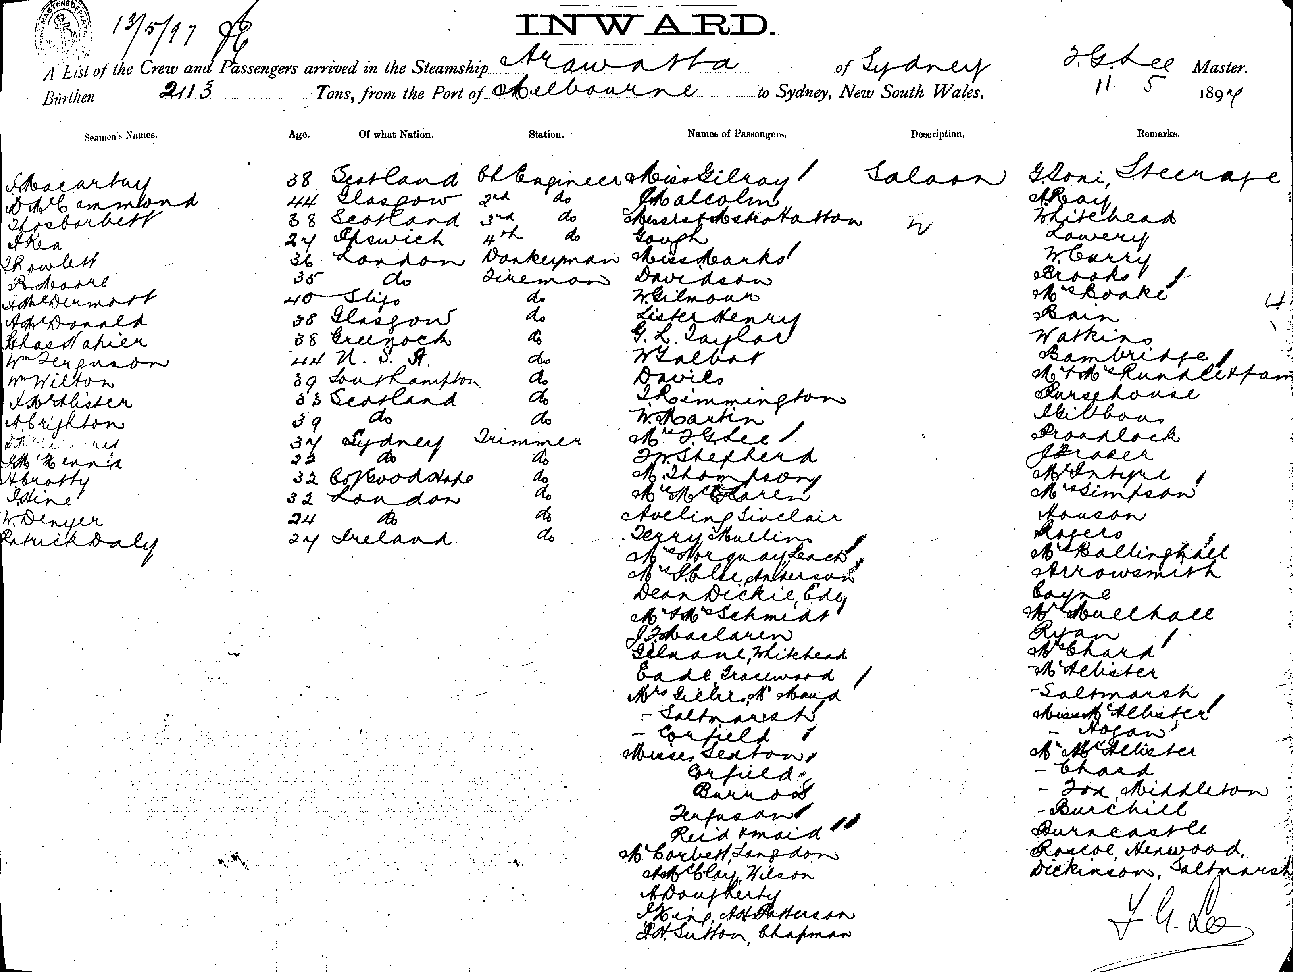 13/5/97
INWARD.
A List of the Crew and Passengers arrived in the Steamship Arawatta of Sydney F G Lee Master.
Burthen 2113 Tons, from the Port of Melbourne to Sydney, New South Wales. 11 5 1897
Seamen's Names. Age. Of what Nation. Station. Names of Passengers. Description. Remarks.
J Macarthy 38 Scotland Ch Engineer Miss Gilroy Saloon G Doni, Steerage
D McCammond 44 Glasgow 2nd do J Malcolm A Ray
Thos Corbett 38 Scotland 3rd do Hatton Whitehead
A Rea 27 Ipswich 4th do Gough Lowery
J Rowlett 36 London Donkeyman Miss Marks W. Curry
R Moore 35 do Fireman Davidson Brooks
J McDermott 40 Sligo do W. Gilmour Mrs Roake
A McDonald 38 Glasgow do Lister Henry Bain
Chas Napier 38 Greenock do G. L. Taylor Watkins
Wm Ferguson 44 U. S. A. do W Talbot Bambridge
Wm Wilton 39 Southampton do Davies Mr & Mrs Rundlett & fam
J McAlister 33 Scotland do J. Rimmington Pursehouse
A Crighton 39 do do W. Martin Gibbons
37 Sydney Trimmer Mrs F G Lee Broadlock
McKennis 22 do do F W Shepherd J Fraser
A Crotty 32 C of Good Hope do M. Thompson McIntyre
J Hine 32 London do Mr McClaren Mrs Simpson
W. Denyer 24 do do Aveling Sinclair Houson
Patrick Daly 27 Ireland do Terry Mullins Rogers
Mrs Norquay Leach Mrs Ballinghall
Anderson Arrowsmith
Dean Dickie, Edy Coyne
Mr & Mrs Schmidt Mr Mullhall
J F Maclaren Ryan
Gilmore, Whitehead Mrs Chard
Eade, Gracewood McAlister
Mrs Gillies, Maud - Saltmarsh
- Saltmarsh Miss McAlister
- Corfield - Hogan
Misses Sexton Mr McAlister
Corfield - Chard
Burrows - Fox, Middleton
Ferguson - Burchill
Reid & maid Burncastle
Mr Corbett, Langdon Roscoe, Henwood,
A McClay, Wilson Dickinson, Saltmarsh
A Dougherty
J King, A H Patterson
J H. Sutton, Chapman
F. G. Lee